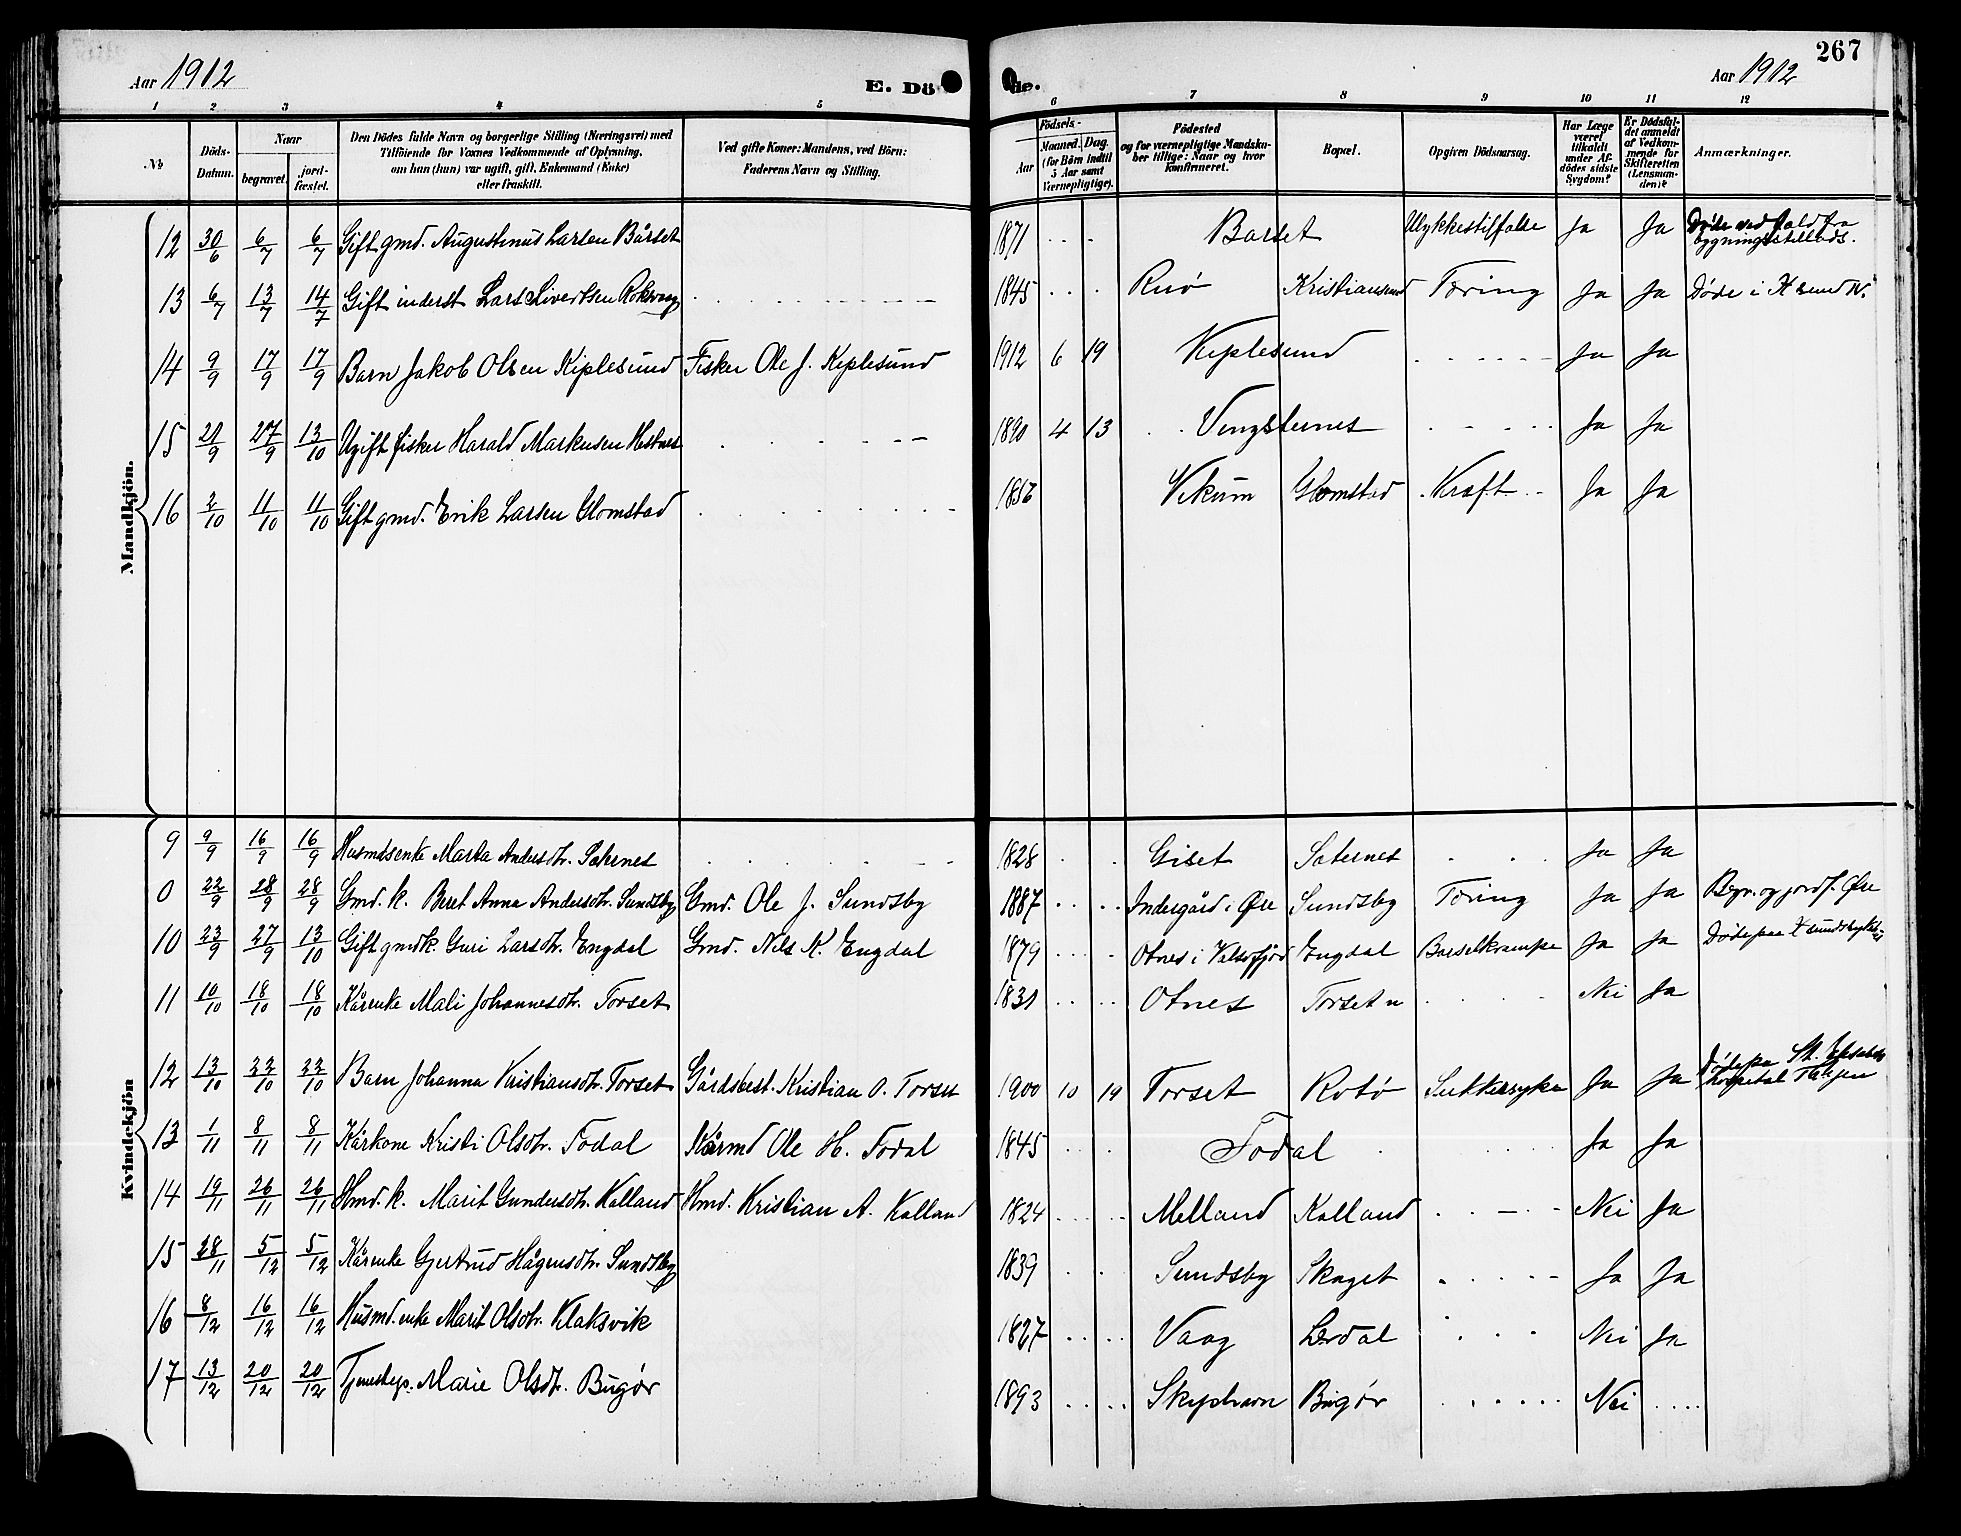 267
Aar 1912
E. Döde.
Aar 1912
1 2 3 4 5 6 7 8 9 10 11 12
No
Döds-Datum.
Naar
begravet.
jord-fæstet.
Den Dödes fulde Navn og borgerlige Stilling (Næringsvei) med
Tilföiende for Voxnes Vedkommende af Oplysning,
om han (hun) var ugift, gift, Enkemand (Enke)
eller fraskilt.
Ved gifte Koner: Mandens, ved Börn:
Faderens Navn og Stilling.
Födsels-
Aar
Maaned. Dag.
(for Börn indtil
5 Aar samt
Værnepligtige).
Födested
og for værnepligtige Mandskaber tillige: Naar og hvor
konfirmeret.
Bopæl.
Opgiven Dödsaarsag.
Har Læge
været
tilkaldt
under Afdödes sidste
Sygdom?
Er Dödsfaldet anmeldt
af Vedkommende for
Skifteretten
(Lensmanden)?
Anmærkninger.
Mandkjön.
12 30/6 6/7 6/7 Gift gmd. Augustinus Larsen Bårset 1871 Barset Ulykkestilfælde Ja Ja Døde ved fald fra bygningsstillads.
13 6/7 13/7 14/7 Gift inderst Lars Sivertsen Roksvaag 1845 Ruø Kristiansund Tæring Ja Ja Døde i Xsund N.
14 9/9 17/9 17/9 Barn Jakob Olsen Kiplesund Fisker Ole J. Kiplesund 1912 6 19 Kiplesund Ja Ja
15 21/9 27/9 13/10 Ugift fisker Harald Markusen Hestnes 1890 4 13 Vengsternes Ja Ja
16 2/10 11/10 11/10 Gift gmd. Erik Larsen Glomstad Vikum Glomstad Kræft Ja Ja
Kvindekjön
9 9/9 16/9 16/9 Husmdsenke Marta Andersdtr. 1828 Giset Saternes Ja Ja
0 22/9 28/9 28/9 Gmd. k. Beret Anna Andersdtr. Sundsby Gmd. Ole J. Sundsby 1887 Indergård i Øre Sundsby Tæring Ja Ja Begr. og jordf. Øre
10 23/9 27/9 13/10 Gift gmdk. Guri Larsdtr. Engdal Gmd. Nils K. Engdal 1879 Otnes i Valsøfjord Engdal Barselkrampe Ja Ja Døde paa Xsunds
11 10/10 18/10 18/10 Kårenke Mali Johannesdtr. Torset 1831 Otnes Torset Nei Ja
12 13/10 22/10 22/10 Barn Johanna Kristiansdtr. Torset Gårdsbest. Kristian O. Torset 1900 10 19 Torset Rotø Sukkersyke Ja Ja Døde paa St. Elisabeth hospital
13 1/11 8/11 8/11 Kårkone Kristi Olsdtr. Fodal Kårmd Ole H. Fodal 1845 Fodal Ja Ja
14 19/11 26/11 26/11 Hmd. k. Marit Gundersdtr. Kalland Hmd. Kristian A. Kalland 1824 Melland Kalland Nei Ja
15 28/11 5/12 5/12 Kårenke Gjertrud Hågensdtr. Sundsby 1839 Sundsby Skaget Ja Ja
16 8/12 16/12 16/12 Husmd. enke Marit Olsdtr. Klaksvik 1827 Vaag Lerdal Nei Ja
17 13/12 20/12 20/12 Tjenestep. Marie Olsdtr. Bugør 1893 Skiphavn Bugør Nei